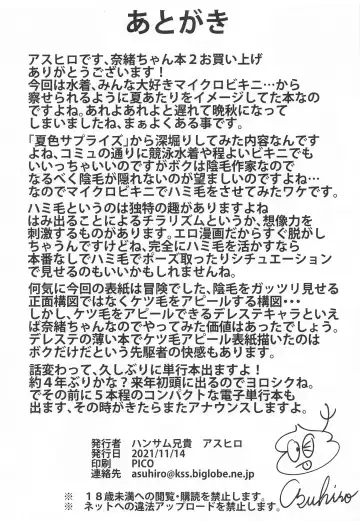 あとがき
アスヒロです、奈緒ちゃん本２お買い上げ
ありがとうございます！
今回は水着、みんな大好きマイクロビキニ…から
察せられるように夏あたりをイメージしてた本なの
ですよね。あれよあれよと遅れて晩秋になって
しまいましたね、まぁよくある事です。
「夏色サプライズ」から深堀りしてみた内容なんです
よね、コミュの通りに競泳水着や程よいビキニでも
いいっちゃいいのですがボクは陰毛作家なので
なるべく陰毛が隠れないのが望ましいのですよね…
なのでマイクロビキニでハミ毛をさせてみたワケです。
ハミ毛というのは独特の趣がありますよね
はみ出ることによるチラリズムというか、想像力を
刺激するものがあります。エロ漫画だからすぐ脱がし
ちゃうんですけどね、完全にハミ毛を活かすなら
本番なしでハミ毛でポーズ取ったりシチュエーション
で見せるのもいいかもしれませんね。
何気に今回の表紙は冒険でした、陰毛をガッツリ見せる
正面構図ではなくケツ毛をアピールする構図・・・
しかし、ケツ毛をアピールできるデレステキャラといえ
ば奈緒ちゃんなのでやってみた価値はあったでしょう。
デレステの薄い本でケツ毛アピール表紙描いたのは
ボクだけだという先駆者の快感もあります。
話変わって、久しぶりに単行本出ますよ！
約４年ぶりかな？来年初頭に出るのでヨロシクね。
でその前に５本程のコンパクトな電子単行本も
出ます、その時がきたらまたアナウンスしますよ。
発行者 ハンサム兄貴 アスヒロ
発行日 2021/11/14
印刷 PICO
連絡先 asuhiro@kss.biglobe.ne.jp
Asuhiro
※ １８歳未満への閲覧・購読を禁止します。
※ ネットへの違法アップロードを禁止します。